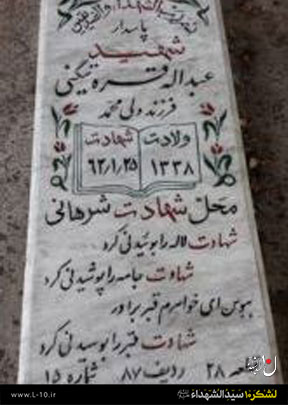 پاسدار
شهید
عبداله قره تیکنی
فرزند ولی محمد
ولادت شهادت
۱۳۳۸ ۶۲/۱/۲۵
محل شهادت شرهانی
شهادت لاله را بوئیدنی کرد
شهادت جامه را پوشیدنی کرد
ببوس ای خواهرم قبر برادر
شهادت قبر را بوسیدنی کرد
۲۸ ردیف ۸۷ شماره ۱۵
www.L-10.ir
لشکر۱۰ سیدالشهداء